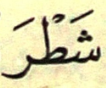 شَطْرَ